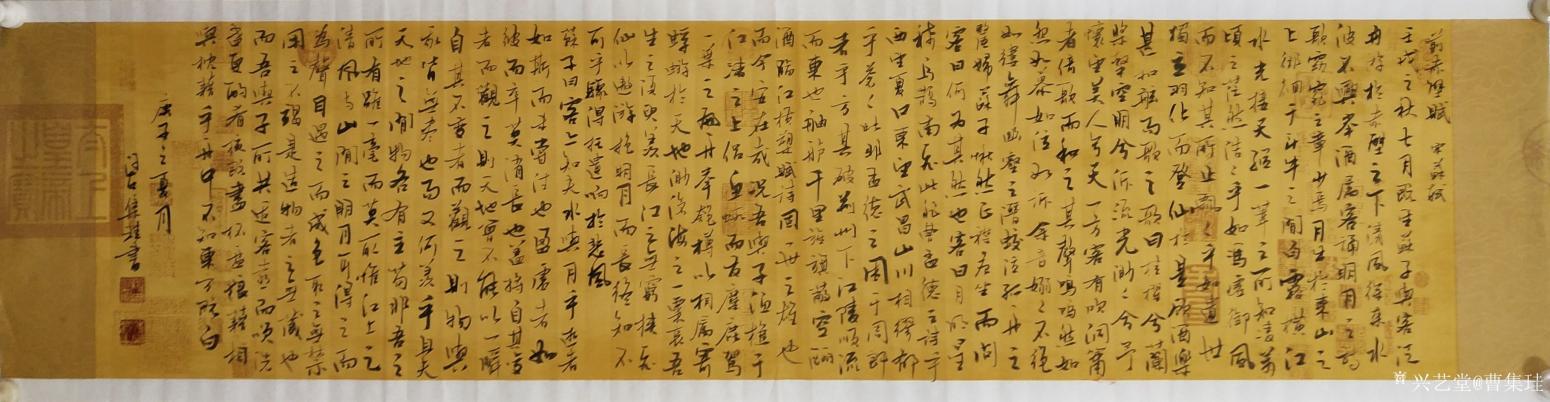 前赤壁賦 宋蘇軾
壬戌之秋七月既望蘇子與客泛
舟游於赤壁之下清風徐來水
波不興举酒属客誦明月之詩
歌窈窕之章少焉月出於東山之
上徘徊于斗牛之間白露橫江
水光接天縱一葦之所如凌萬
頃之茫然浩浩乎如馮虛御風
而不知其所止飄飄乎如遺世
獨立羽化而登仙於是飲酒樂
甚扣舷而歌之歌曰桂棹兮蘭
槳擊空明兮泝流光渺渺兮予
懷望美人兮天一方客有吹洞簫
者倚歌而和之其聲嗚嗚然如
怨如慕如泣如訴余音嫋嫋不絕
如縷舞幽壑之潛蛟泣孤舟之
嫠婦蘇子愀然正襟危坐而問
客曰何為其然也客曰月明星
稀烏鵲南飛此非曹孟德之詩乎
西望夏口東望武昌山川相繆郁
乎蒼蒼此非孟德之困于周郎
者乎方其破荊州下江陵順流
而東也舳艫千里旌旗蔽空釃
酒臨江橫槊賦詩固一世之雄也
而今安在哉況吾與子漁樵于
江渚之上侶魚蝦而友麋鹿駕
一葉之扁舟舉匏樽以相屬寄
蜉蝣於天地渺滄海之一粟哀吾
生之須臾羨長江之無窮挾飛
仙以遨游抱明月而長終知不
可乎驟得托遺響於悲風
蘇子曰客亦知夫水與月乎逝者
如斯而未嘗往也盈虛者如
彼而卒莫消長也蓋將自其變
者而觀之則天地曾不能以一瞬
自其不變者而觀之則物與
我皆無盡也而又何羨乎且夫
天地之間物各有主苟非吾之
所有雖一毫而莫取惟江上之
清風與山間之明月耳得之而
為聲目遇之而成色取之無禁
用之不竭是造物者之無盡藏也
而吾與子所共適客喜而笑洗
盞更酌肴核既盡杯盤狼藉相
與枕藉乎舟中不知東方既白
庚子之夏月
集珪書
兴艺堂@曹集珪